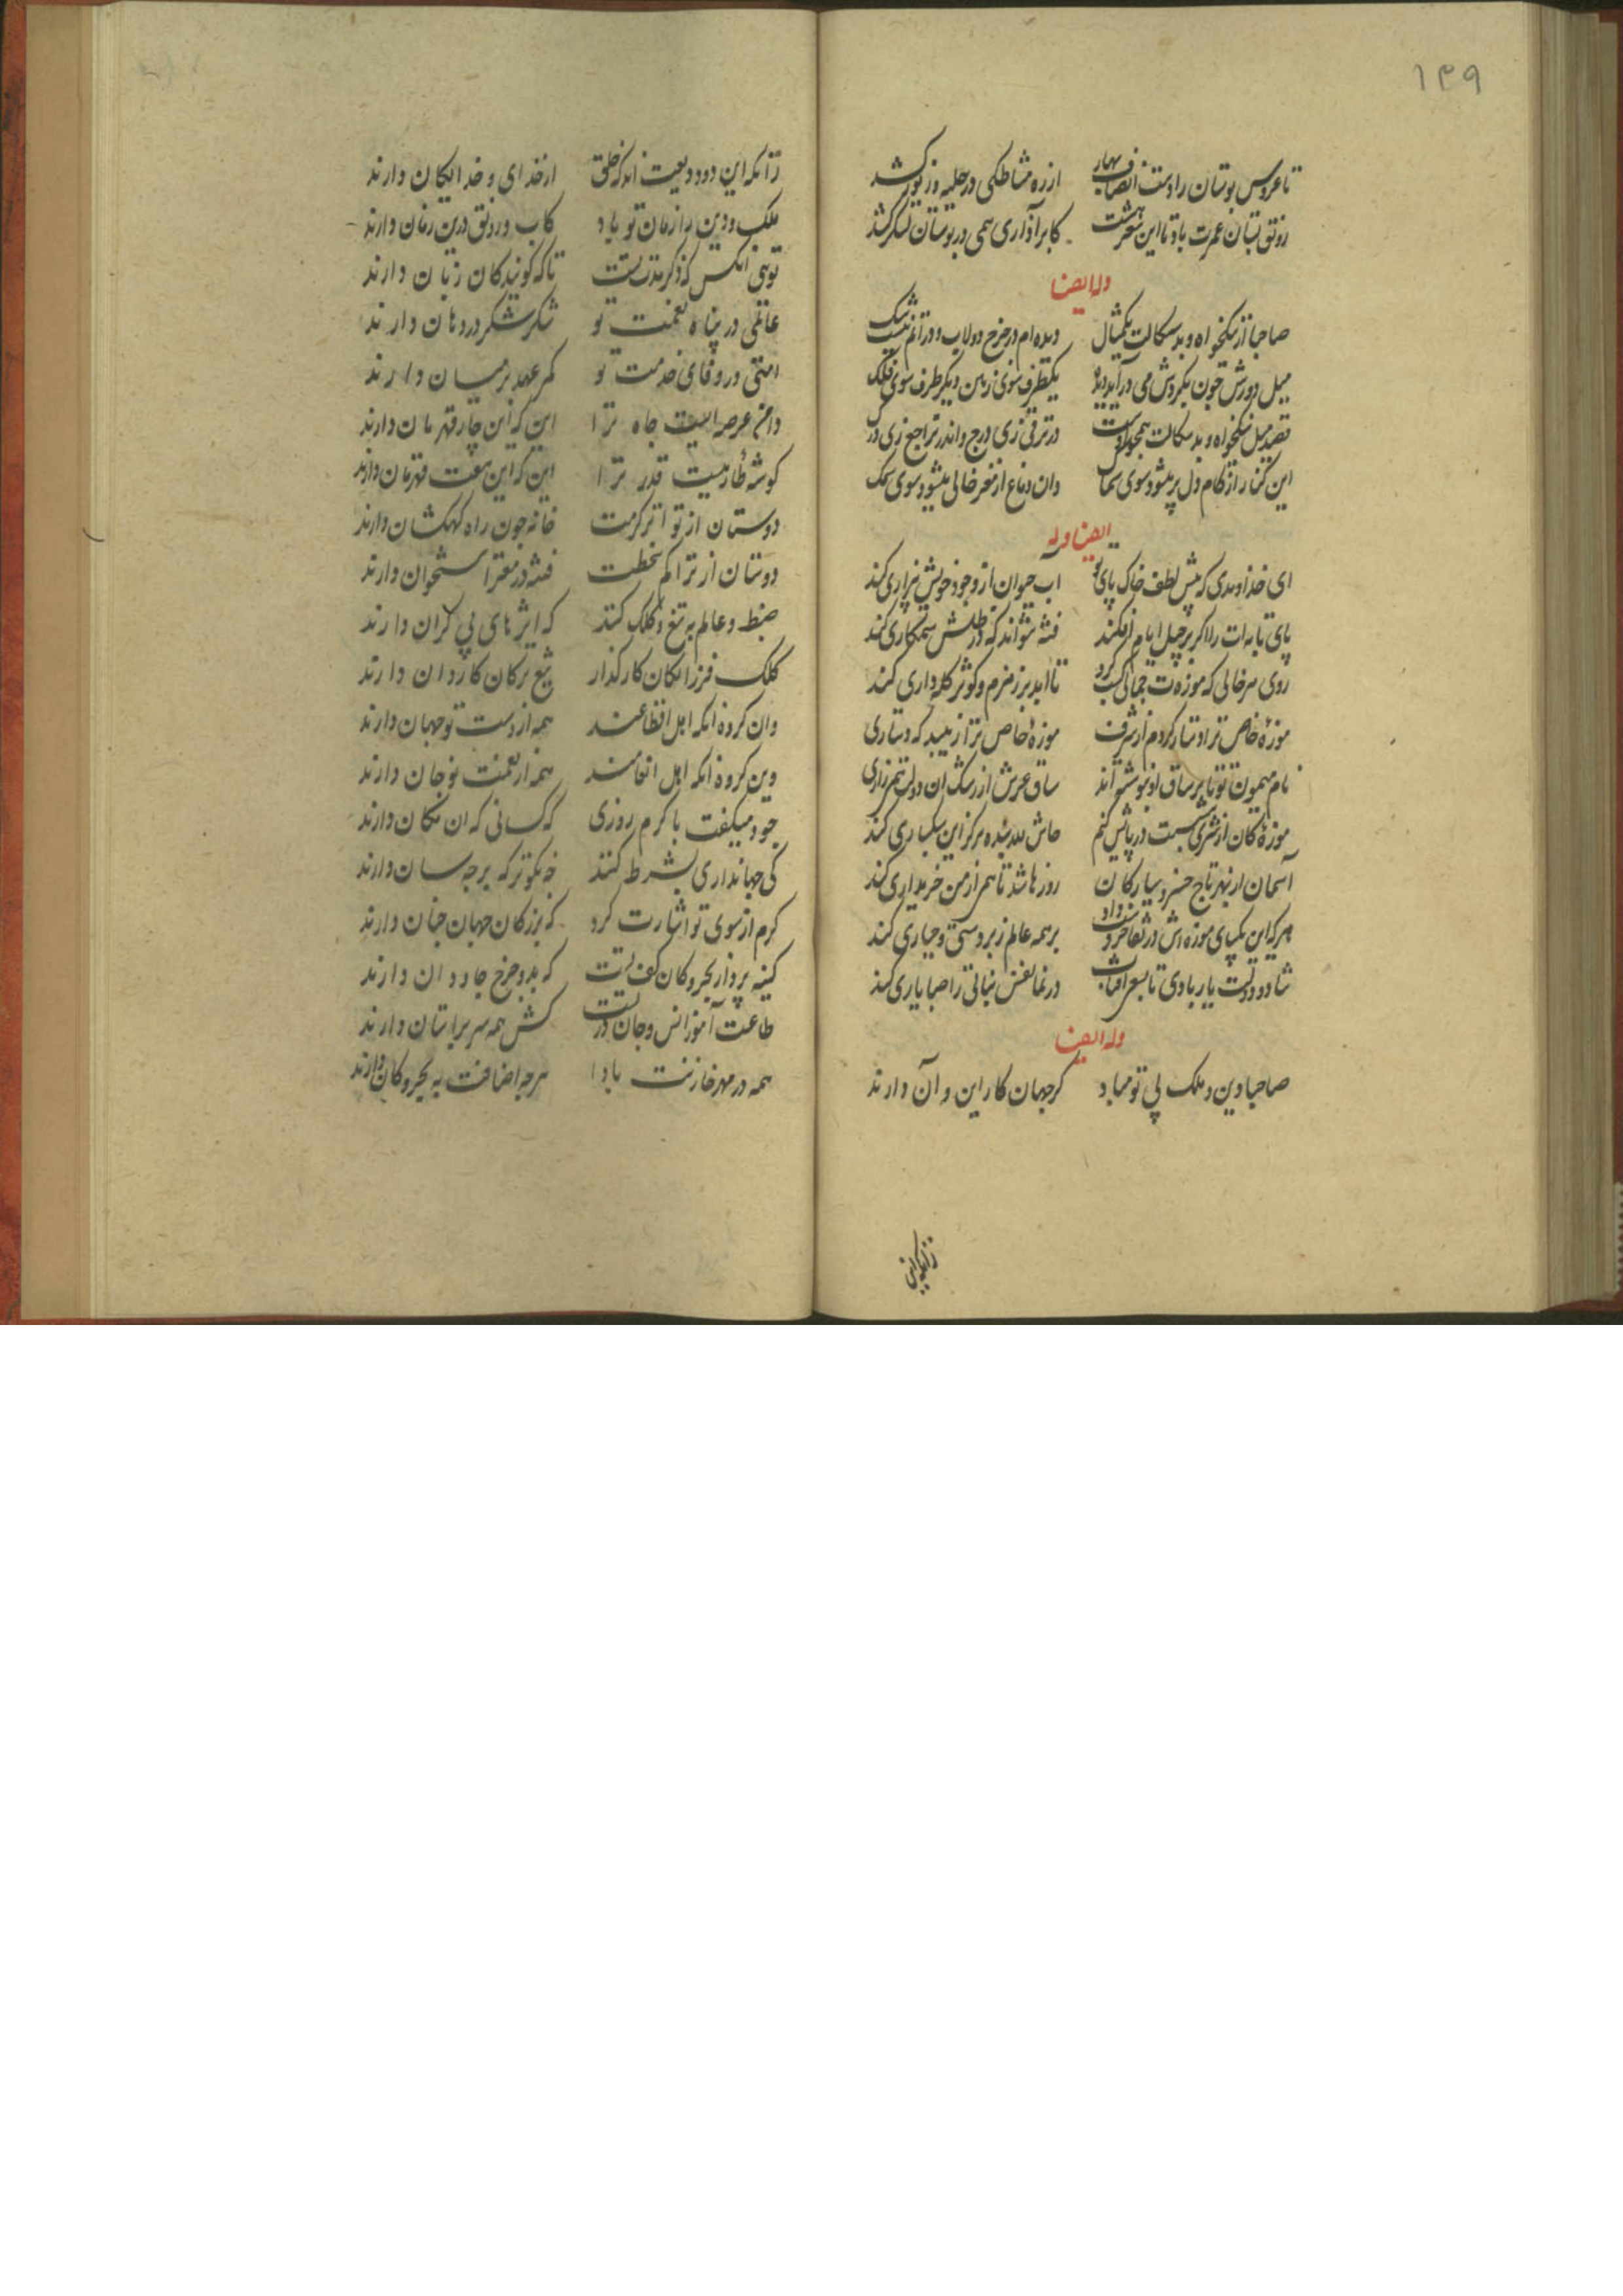 ۱۳۹
تا عروس بوستان را دست انصاف بهار از ره مشاطگی در حلیه و زیور کشد
رونق بستان عمرت باد تا این سحر هشت کابر آذاری همی در بوستان لشکر کشد
وله ایضا
صاحبا از نیکخواه و بدسکالت یکمثال دیده‌ام در چرخ دولاب و در آنم نیست شک
میل دورش چون بگردش می درآید یکطرف سوی زمین و دیگر طرف سوی فلک
قصه میل نیکخواه و بدسکالت همچو در ترقی زی درج و اندر تراجع زی درک
این کنار از کام دل پر میشود سوی سماک وان دماغ از مغز خالی میشود سوی سمک
ایضا وله
ای خداوندی که پیش لطف خاک پای تو اب حیوان از وجود خویش بیزاری کند
پای تابه‌ات را اگر بر جیل ایام افکند فتنه نتواند که در ظلش ستمکاری کند
روی هر خاکی که موزه‌ت جمالی کسب کرد تا ابد بر زمزم و کوثر کله‌داری کند
موزه خاص ترا دستار کردم از شرف موزهٔ خاص ترا زیبد که دستاری
نام میمون تو تا بر ساق او بنوشته‌اند ساق عرش از رشک ان دولت همی زاری
موزهٔ کان از شرف بیست در پایش کنم حاش لله بنده هرگز این سبکباری کند
آسمان از بهر تاج خسرو سیارکان روزها شد تا همی از من خریداری کند
هر که این یکپای موزه‌اش در تفاخر دست داد بر همه عالم زبردستی و جباری کند
شاد و دولت یار بادی تا بسعی افتاب در نما نفس نباتی را صبا یاری کند
وله ایضا
صاحبا دین و ملک بی تو مباد کر جهان کار این و آن دارند
زانکه این
زانکه این دو ودیعت اند که خلق از خدای و خدایکان دارند
ملک و دین را زمان تو باد کاب و رونق درین زمان دارند
توئی انکس که ذکر مدت تست تا که کویندکان زبان دارند
عالمی در پناه نعمت تو شکر شکر در دهان دارند
امتی در وفای خدمت تو کمر عهد بر میان دارند
دامن عرصه ایست جاه ترا این که این چار قهرمان دارند
کوشه طارمیست قدر ترا این که این هفت قهرمان دارند
دوستان از تواتر کرمت خانه چون راه کهکشان دارند
دوستان از تراکم سخطت فتنه در مغز استخوان دارند
ضبط و عالم به تیغ و کلک کنند که اثرهای بی کران دارند
کلک فرزانکان کارکذار تیغ ترکان کاردان دارند
وان کروه انکه اهل اقطاعند همه از دست تو جهان دارند
وین کروه انکه اهل انعامند همه از نعمت تو جان دارند
جود میکفت با کرم روزی که کسانی که ان مکان دارند
کی جهانداری بشرط کنند خه نکوتر که بر چه سان دارند
کرم از سوی تو اشارت کرد که بزرکان جهان چنان دارند
کینه پرداز بحر و کان کف تست که بدو چرخ جاودان دارند
طاعت آموز انس و جان در تست کش همه سر بر استان دارند
همه در مهر خازنت بادا هر چه اضافت به بحر و کان دارند